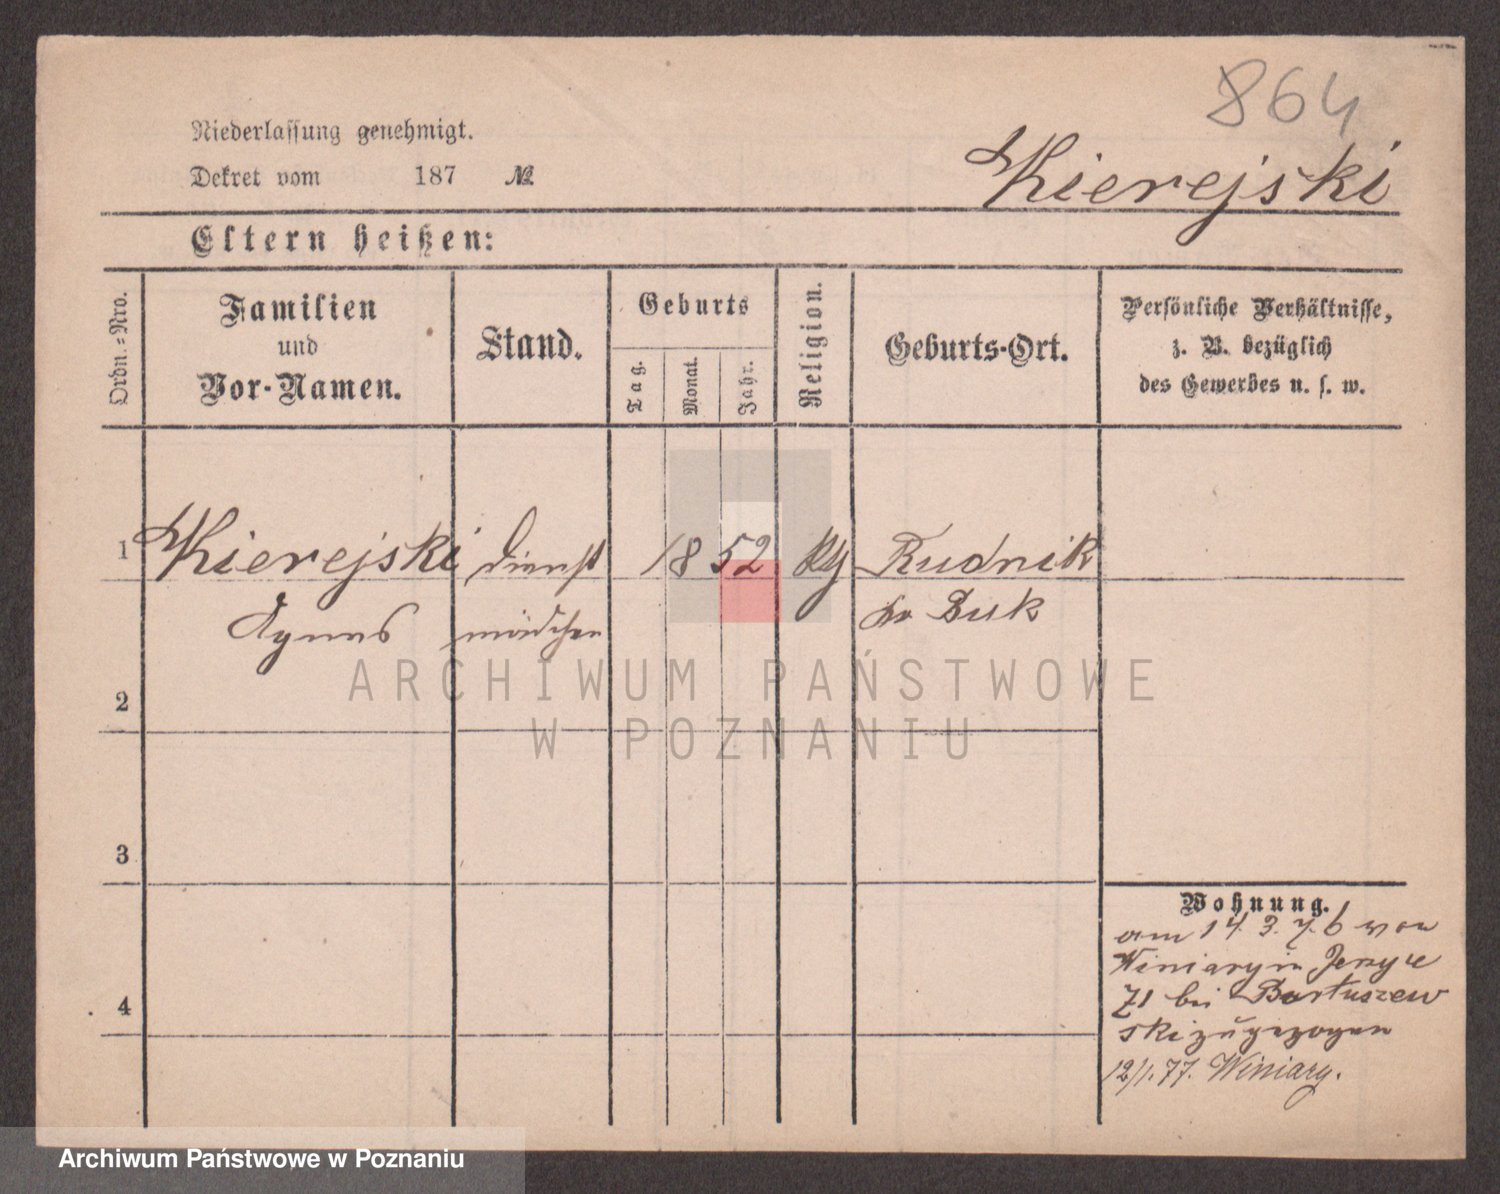 864
Niederlassung genehmigt.
Dekret vom 187 №
Kierejski
Eltern heißen:
Ordn.-Nro.
Familien
und
Vor-Namen.
Stand.
Geburts
Tag.
Monat.
Jahr.
Religion.
Geburts-Ort.
Persönliche Verhältnisse,
z. B. bezüglich
des Gewerbes u. s. w.
1 Kierejski dienst 1852 Rudnik
Agnes mädchen Buk
ARCHIWUM PAŃSTWOWE
W POZNANIU
2
3
4
Wohnung.
am 14. 3. 76 von
Winiary in Jerzyce
71 bei Bartuszew
ski zugezogen
12/1.77. Winiary.
Archiwum Państwowe w Poznaniu